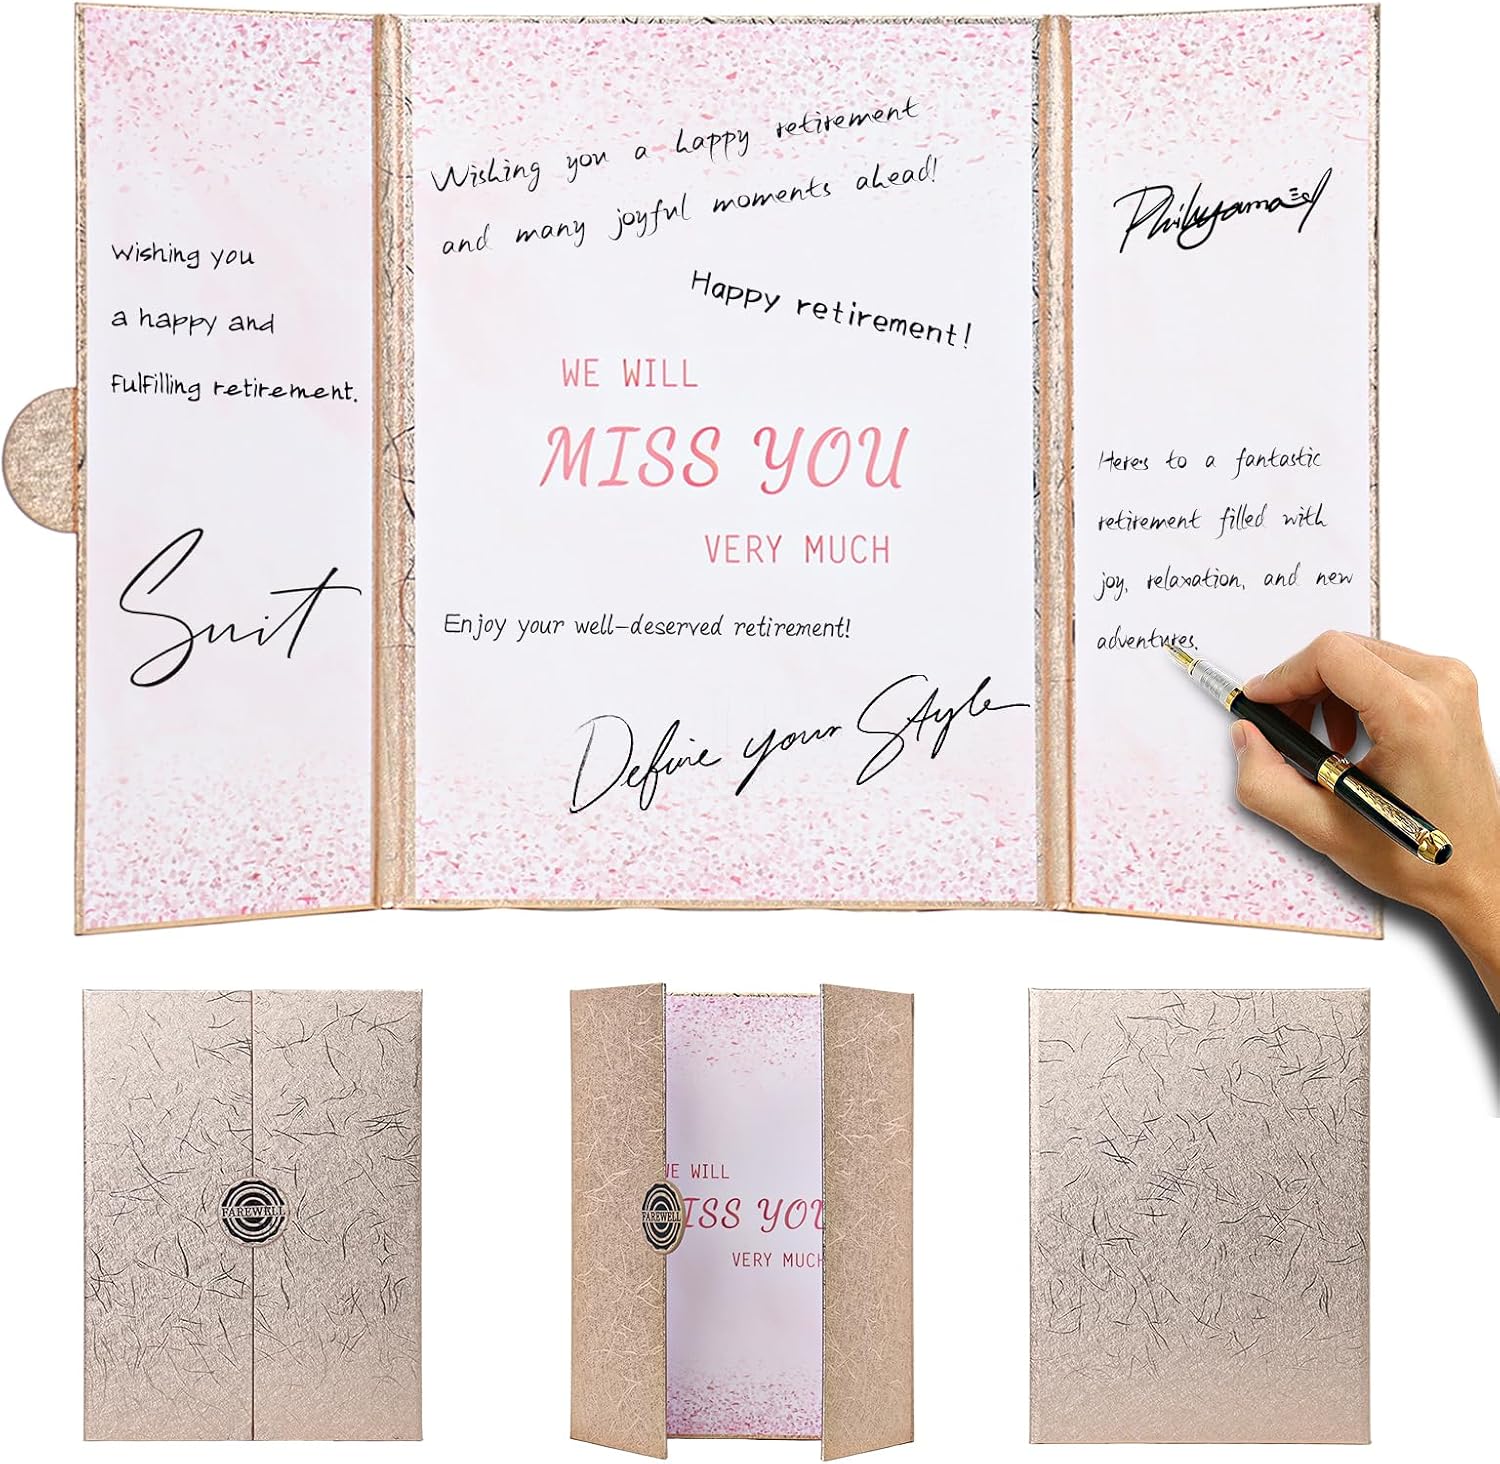 Wishing you
a happy and
fulfilling retirement.
Suit
Wishing you a happy retirement
and many joyful moments ahead!
Happy retirement!
WE WILL
MISS YOU
VERY MUCH
Enjoy your well-deserved retirement!
Define your Style
Heres to a fantastic
retirement filled with
joy, relaxation, and new
adventures.
FAREWELL
WE WILL
ISS YOU
VERY MUCH
FAREWELL